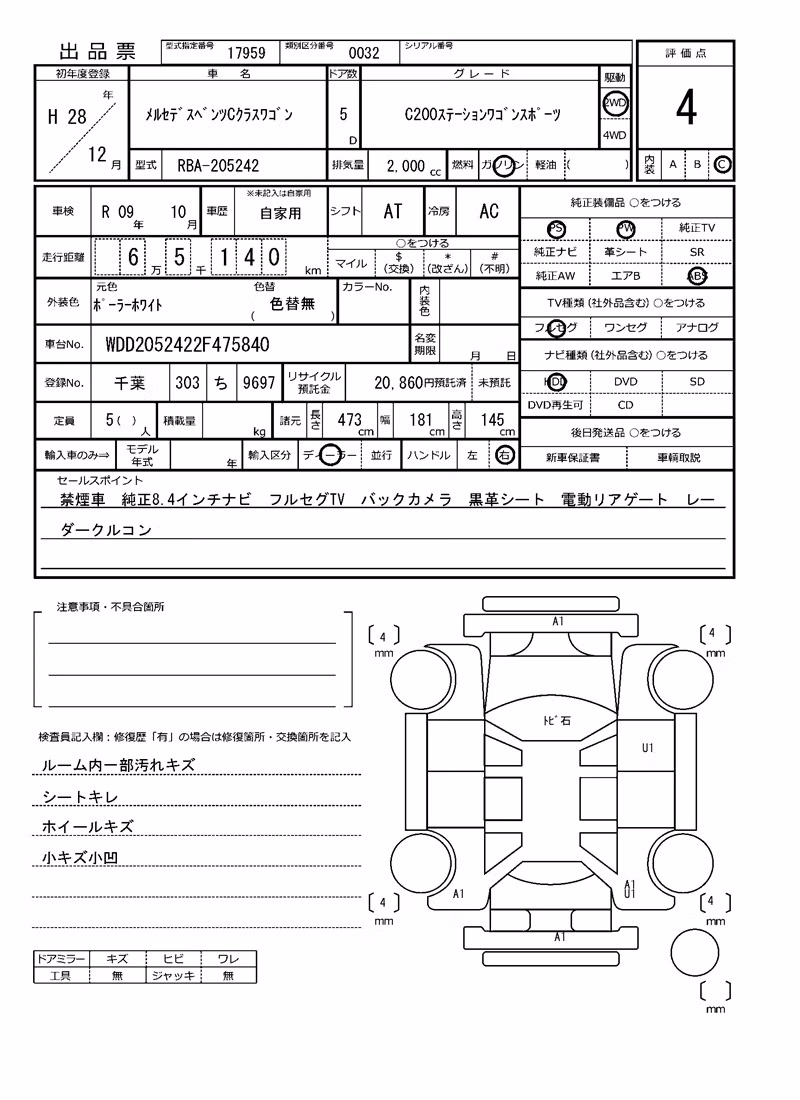 出品票 型式指定番号 17959 類別区分番号 0032 シリアル番号
評価点
初年度登録 車名 ドア数 グレード 駆動
H 28 年 12 月 ﾒﾙｾﾃﾞｽﾍﾞﾝﾂCｸﾗｽﾜｺﾞﾝ 5 D C200ｽﾃｰｼｮﾝﾜｺﾞﾝｽﾎﾟｰﾂ 2WD 4WD
4
型式 RBA-205242 排気量 2,000 cc 燃料 ガソリン 軽油 ( )
内装 A B C
車検 R 09 年 10 月 車歴 ※未記入は自家用 自家用 シフト AT 冷房 AC
純正装備品 ○をつける
PS PW 純正TV
純正ナビ 革シート SR
純正AW エアB ABS
走行距離 6 万 5 千 1 4 0 km ○をつける
マイル $ (交換) * (改ざん) # (不明)
外装色 元色 ﾎﾟｰﾗｰﾎﾜｲﾄ 色替 ( 色替無 ) カラーNo. 内装色
TV種類 (社外品含む) ○をつける
フルセグ ワンセグ アナログ
車台No. WDD2052422F475840 名変期限 月 日
ナビ種類 (社外品含む) ○をつける
HDD DVD SD
DVD再生可 CD
登録No. 千葉 303 ち 9697 リサイクル預託金 20,860円預託済 未預託
定員 5( ) 人 積載量 kg 諸元 長さ 473 cm 幅 181 cm 高さ 145 cm
後日発送品 ○をつける
新車保証書 車輌取説
輸入車のみ⇒ モデル年式 年 輸入区分 ディーラー 並行 ハンドル 左 右
セールスポイント
禁煙車 純正8.4インチナビ フルセグTV バックカメラ 黒革シート 電動リアゲート レー
ダークルコン
注意事項・不具合箇所
検査員記入欄：修復歴「有」の場合は修復箇所・交換箇所を記入
ルーム内一部汚れキズ
シートキレ
ホイールキズ
小キズ小凹
ドアミラー キズ ヒビ ワレ
工具 無 ジャッキ 無
A1
4 mm
4 mm
ﾄﾋﾞ石
U1
A1
A1
U1
4 mm
4 mm
A1
mm